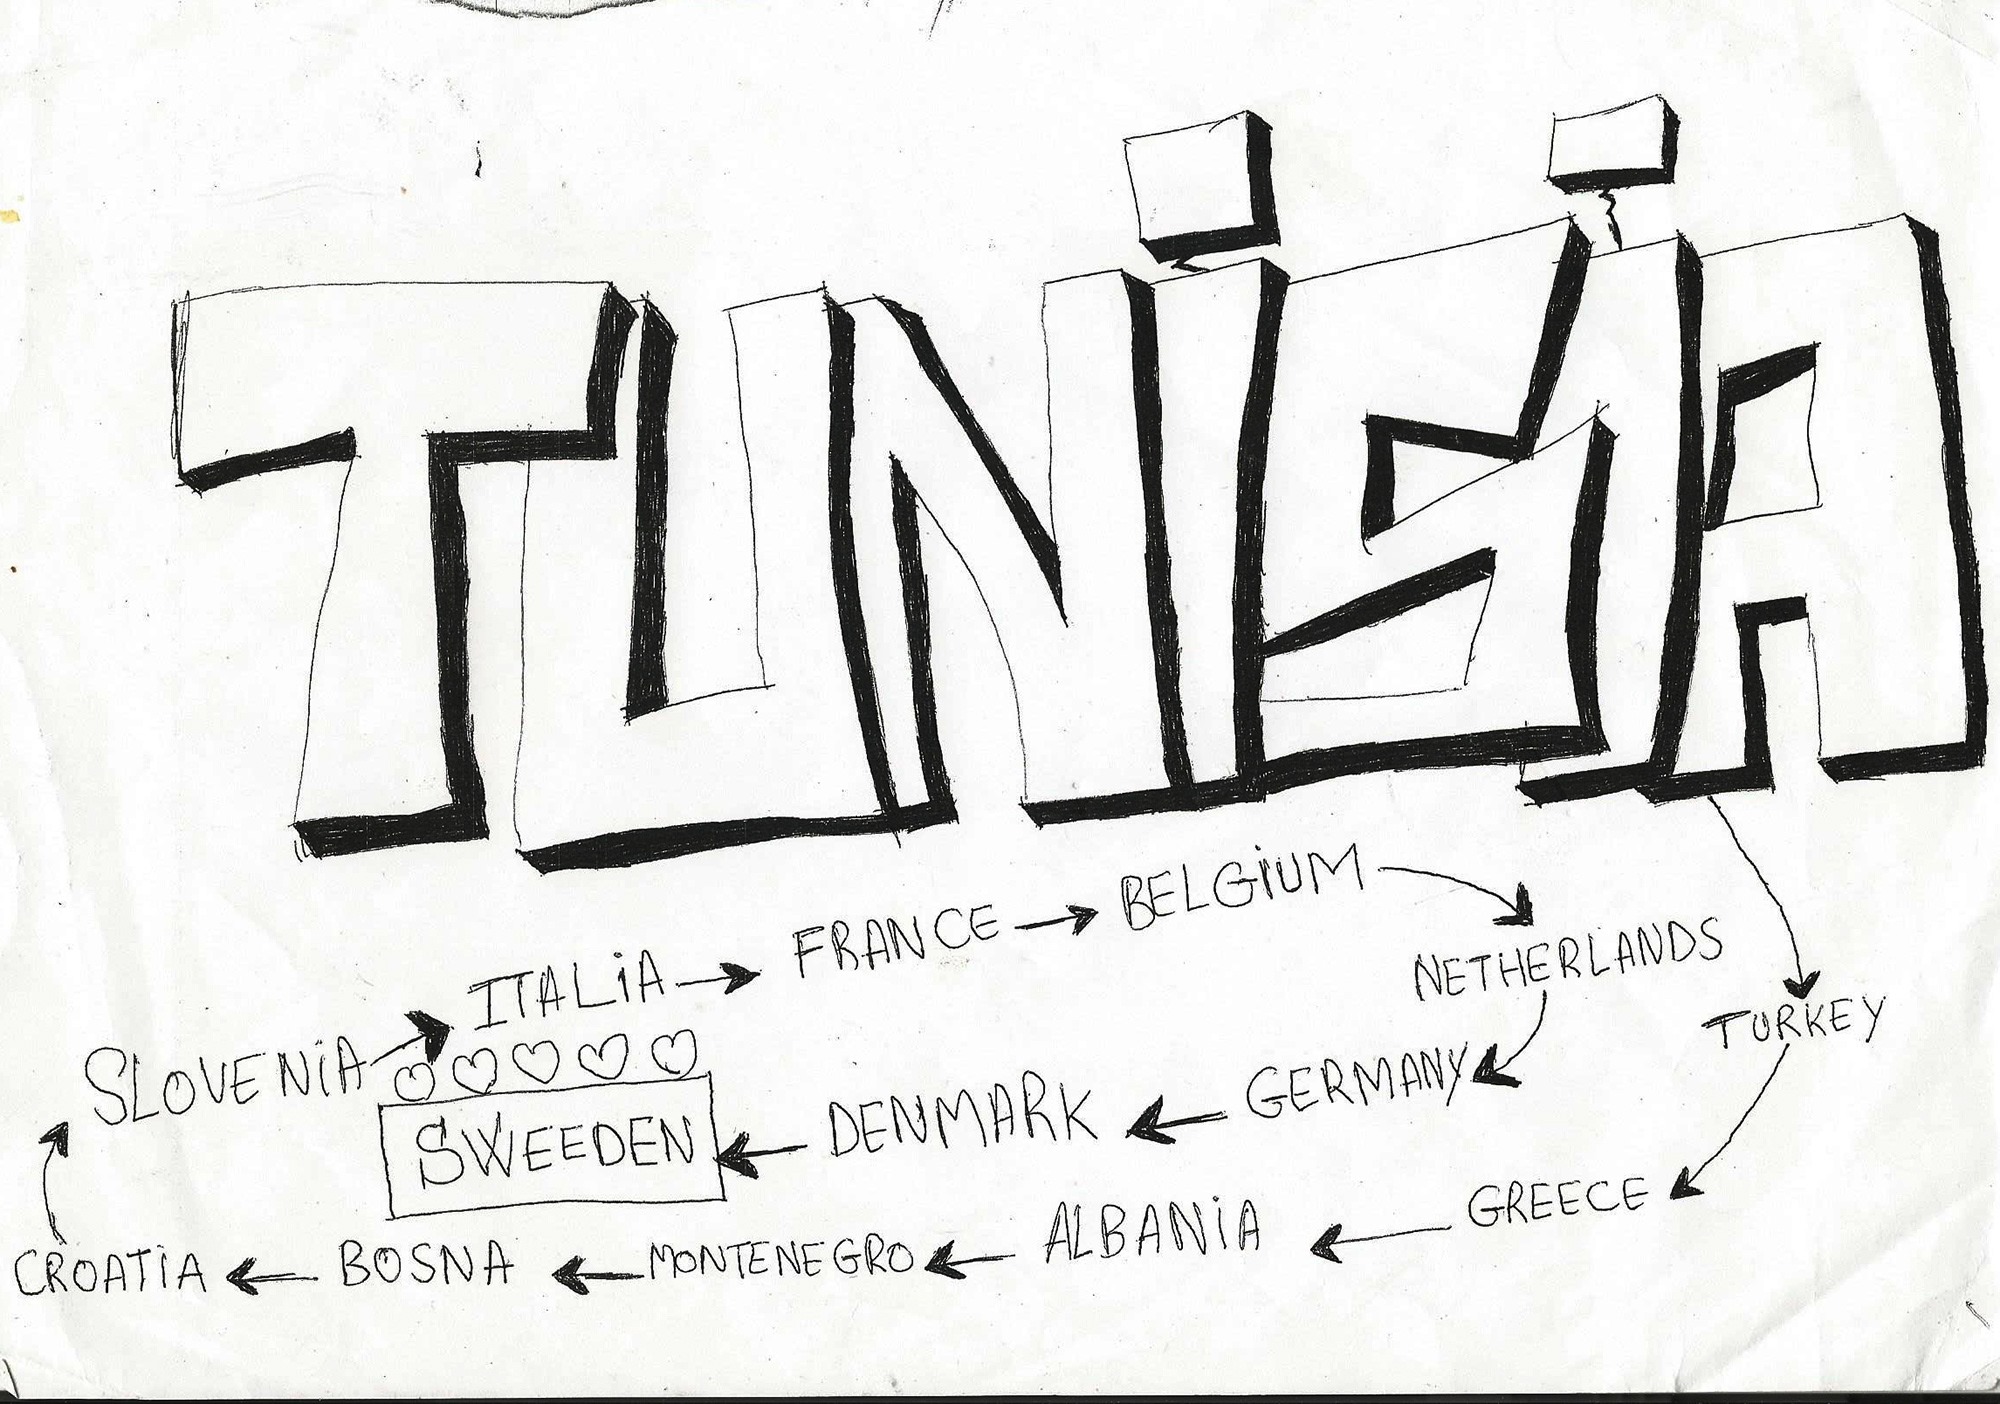 TUNiSiA
FRANCE → BELGiUM
SLOVENiA → ITALiA →
NETHERLANDS
TURKEY
SWEEDEN ← DENMARK ← GERMANY
CROATiA ← BOSNA ← MONTENEGRO ← ALBANiA ← GREECE